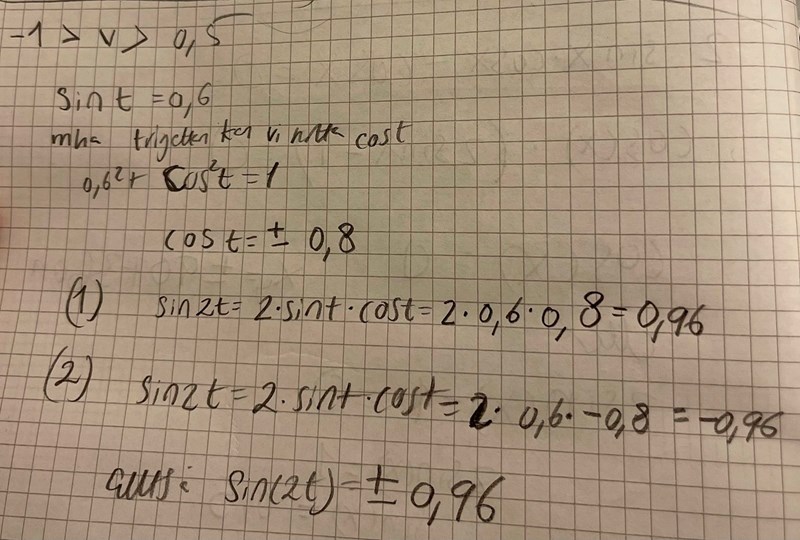 -1 > v > 0,5
sin t = 0,6
mha trigettan kan vi hitta cost
0,6² + cos²t = 1
cos t = ± 0,8
(1) sin2t = 2·sint·cost = 2·0,6·0,8 = 0,96
(2) sin2t = 2·sint·cost = 2·0,6·-0,8 = -0,96
alltså: sin(2t) = ± 0,96